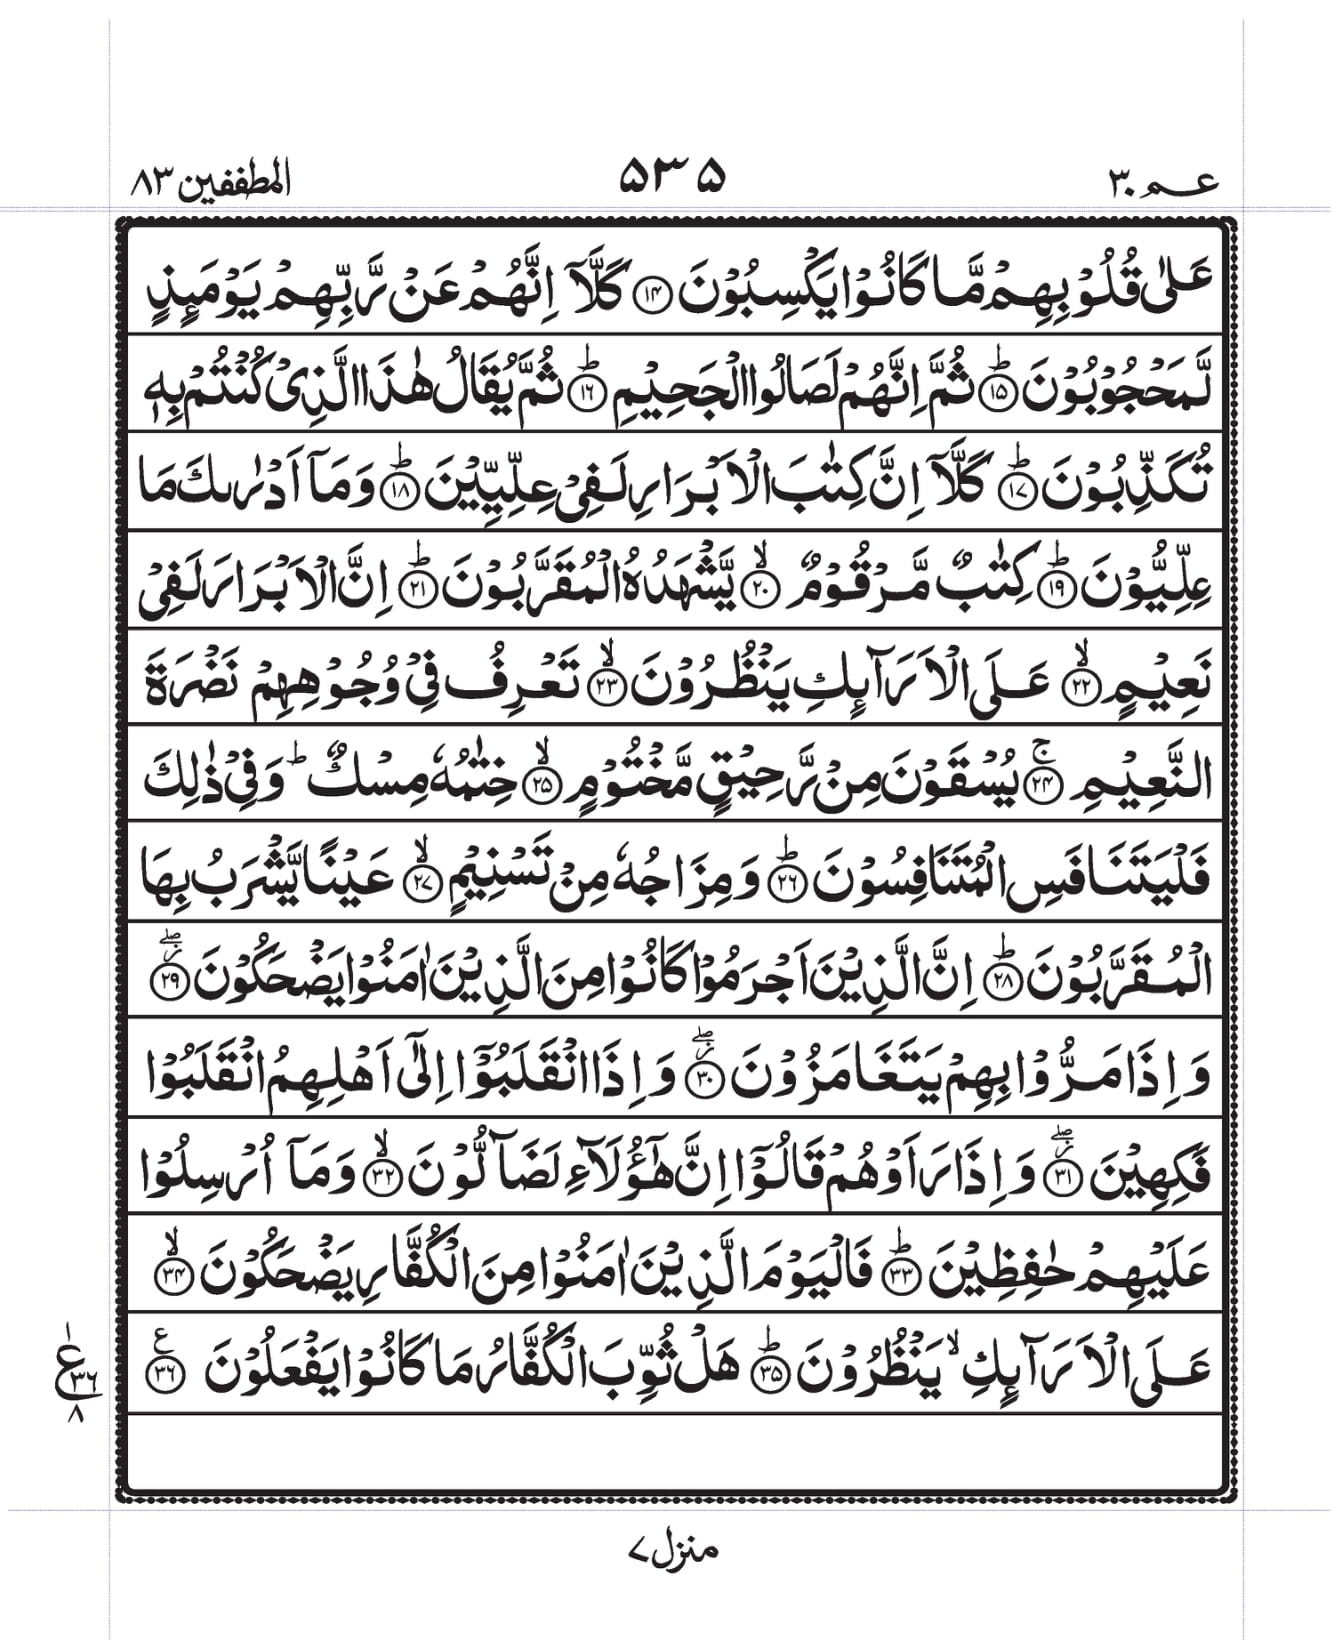 عـم ۳۰ ۵۳۵ المطففین ۸۳
عَلٰی قُلُوْبِهِمْ مَّا كَانُوْا یَكْسِبُوْنَ ﴿۱۴﴾ كَلَّاۤ اِنَّهُمْ عَنْ رَّبِّهِمْ یَوْمَىِٕذٍ
لَّمَحْجُوْبُوْنَ ؕ﴿۱۵﴾ ثُمَّ اِنَّهُمْ لَصَالُوا الْجَحِیْمِ ؕ﴿۱۶﴾ ثُمَّ یُقَالُ هٰذَا الَّذِیْ كُنْتُمْ بِهٖ
تُكَذِّبُوْنَ ؕ﴿۱۷﴾ كَلَّاۤ اِنَّ كِتٰبَ الْاَبْرَارِ لَفِیْ عِلِّیِّیْنَ ؕ﴿۱۸﴾ وَ مَاۤ اَدْرٰىكَ مَا
عِلِّیُّوْنَ ؕ﴿۱۹﴾ كِتٰبٌ مَّرْقُوْمٌ ۙ﴿۲۰﴾ یَّشْهَدُهُ الْمُقَرَّبُوْنَ ؕ﴿۲۱﴾ اِنَّ الْاَبْرَارَ لَفِیْ
نَعِیْمٍ ۙ﴿۲۲﴾ عَلَی الْاَرَآىِٕكِ یَنْظُرُوْنَ ۙ﴿۲۳﴾ تَعْرِفُ فِیْ وُجُوْهِهِمْ نَضْرَةَ
النَّعِیْمِ ۚ﴿۲۴﴾ یُسْقَوْنَ مِنْ رَّحِیْقٍ مَّخْتُوْمٍ ۙ﴿۲۵﴾ خِتٰمُهٗ مِسْكٌ ؕ وَ فِیْ ذٰلِكَ
فَلْیَتَنَافَسِ الْمُتَنَافِسُوْنَ ؕ﴿۲۶﴾ وَ مِزَاجُهٗ مِنْ تَسْنِیْمٍ ۙ﴿۲۷﴾ عَیْنًا یَّشْرَبُ بِهَا
الْمُقَرَّبُوْنَ ؕ﴿۲۸﴾ اِنَّ الَّذِیْنَ اَجْرَمُوْا كَانُوْا مِنَ الَّذِیْنَ اٰمَنُوْا یَضْحَكُوْنَ ؗۖ﴿۲۹﴾
وَ اِذَا مَرُّوْا بِهِمْ یَتَغَامَزُوْنَ ؗۖ﴿۳۰﴾ وَ اِذَا انْقَلَبُوْۤا اِلٰۤی اَهْلِهِمُ انْقَلَبُوْا
فَكِهِیْنَ ؗۖ﴿۳۱﴾ وَ اِذَا رَاَوْهُمْ قَالُوْۤا اِنَّ هٰۤؤُلَآءِ لَضَآلُّوْنَ ۙ﴿۳۲﴾ وَ مَاۤ اُرْسِلُوْا
عَلَیْهِمْ حٰفِظِیْنَ ؕ﴿۳۳﴾ فَالْیَوْمَ الَّذِیْنَ اٰمَنُوْا مِنَ الْكُفَّارِ یَضْحَكُوْنَ ۙ﴿۳۴﴾
عَلَی الْاَرَآىِٕكِ ۙ یَنْظُرُوْنَ ؕ﴿۳۵﴾ هَلْ ثُوِّبَ الْكُفَّارُ مَا كَانُوْا یَفْعَلُوْنَ ﴿۳۶﴾ ع
۱ ع ۳۶ ۸
منزل ۷